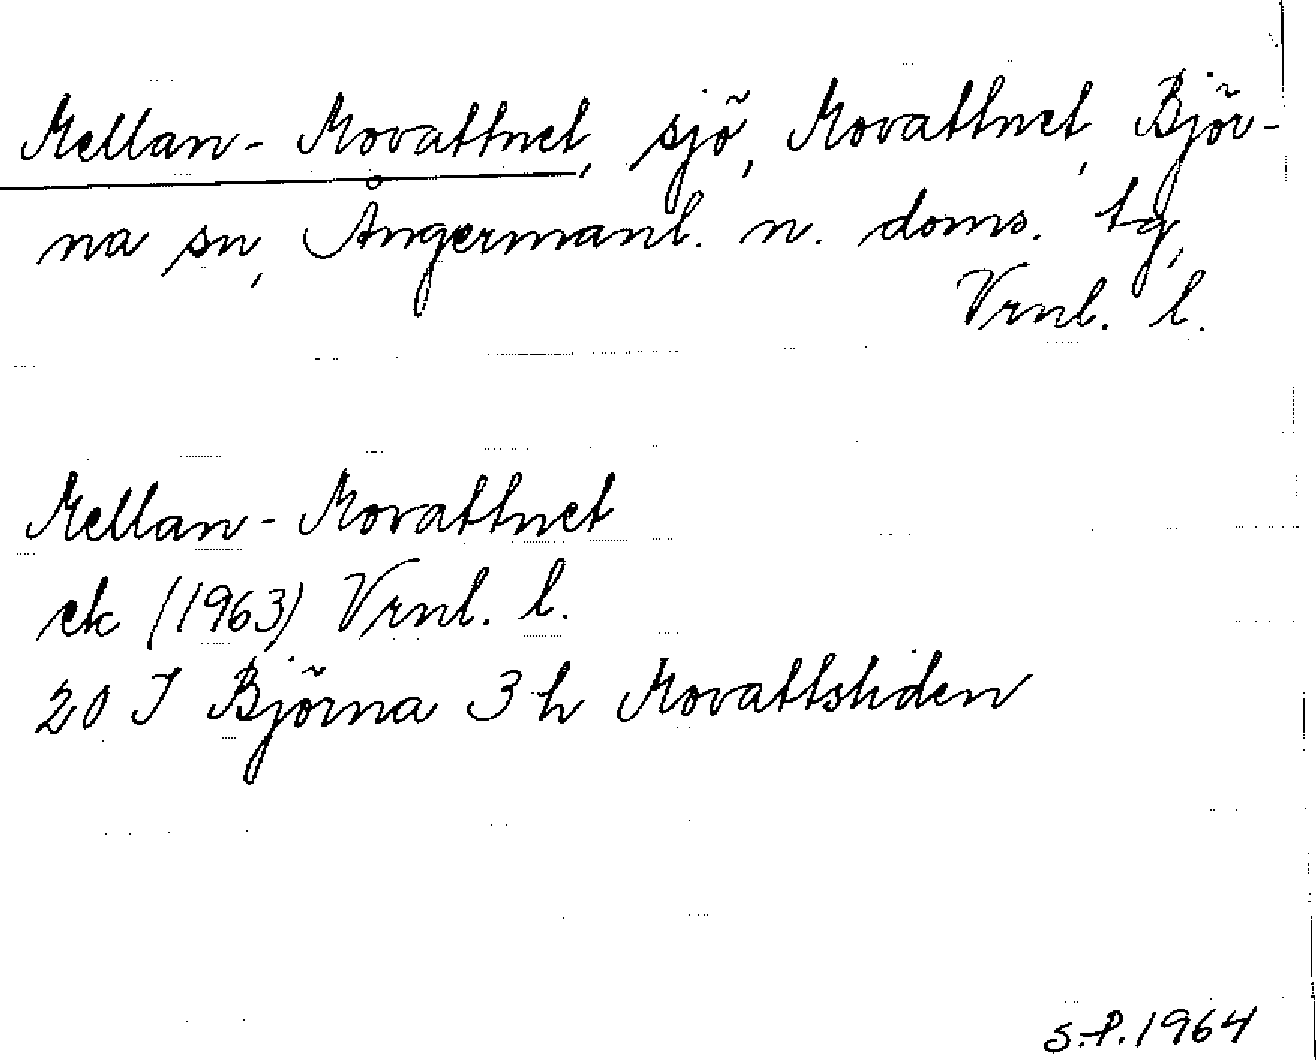 Mellan-Movattnet, sjö, Movattnet, Björ-
na sn, Ångermanl. n. doms. tg,
Vrnl. l.
Mellan-Movattnet
ek (1963) Vrnl. l.
20 I Björna 3 h Movattsliden
S.P. 1964